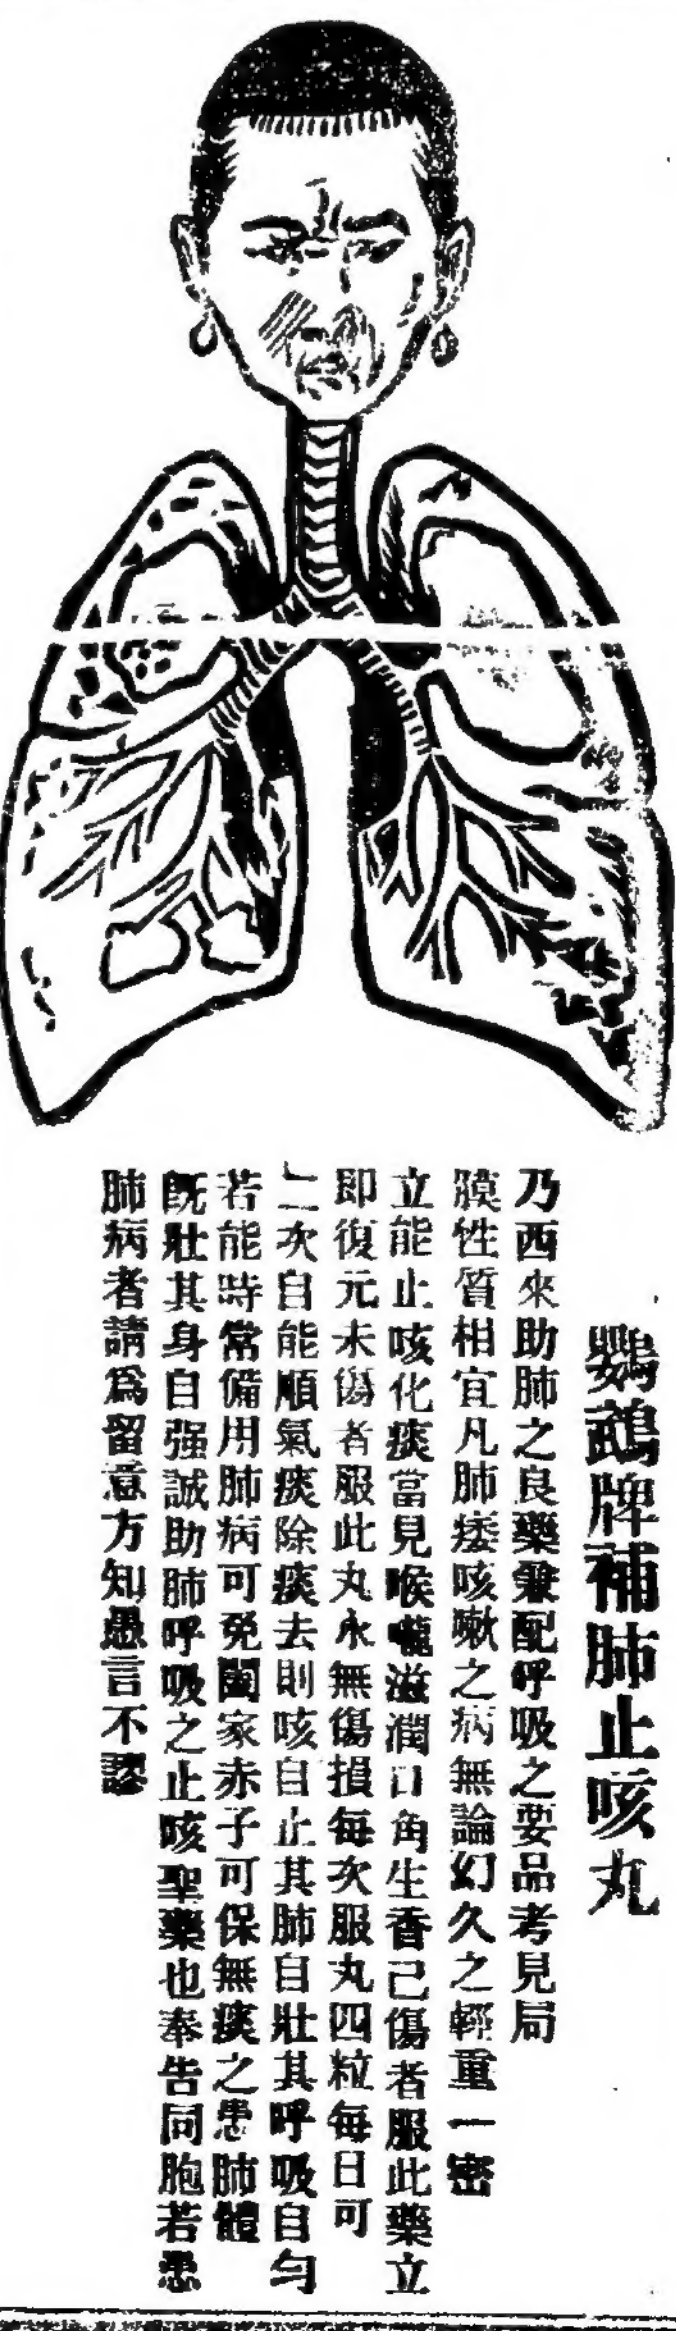 鸚鵡牌補肺止咳丸
乃西來助肺之良藥兼配呼吸之要品考見局
膜性質相宜凡肺痿咳嗽之病無論幻久之輕重一密
立能止咳化痰當見喉嚨滋潤口角生香己傷者服此藥立
即復元未傷者服此丸永無傷損每次服丸四粒每日可
二次自能順氣痰除痰去則咳自止其肺自壯其呼吸自勻
若能時常備用肺病可免闔家赤子可保無痰之患肺體
既壯其身自强誠助肺呼吸之止咳聖藥也奉告同胞若患
肺病者請爲留意方知愚言不謬